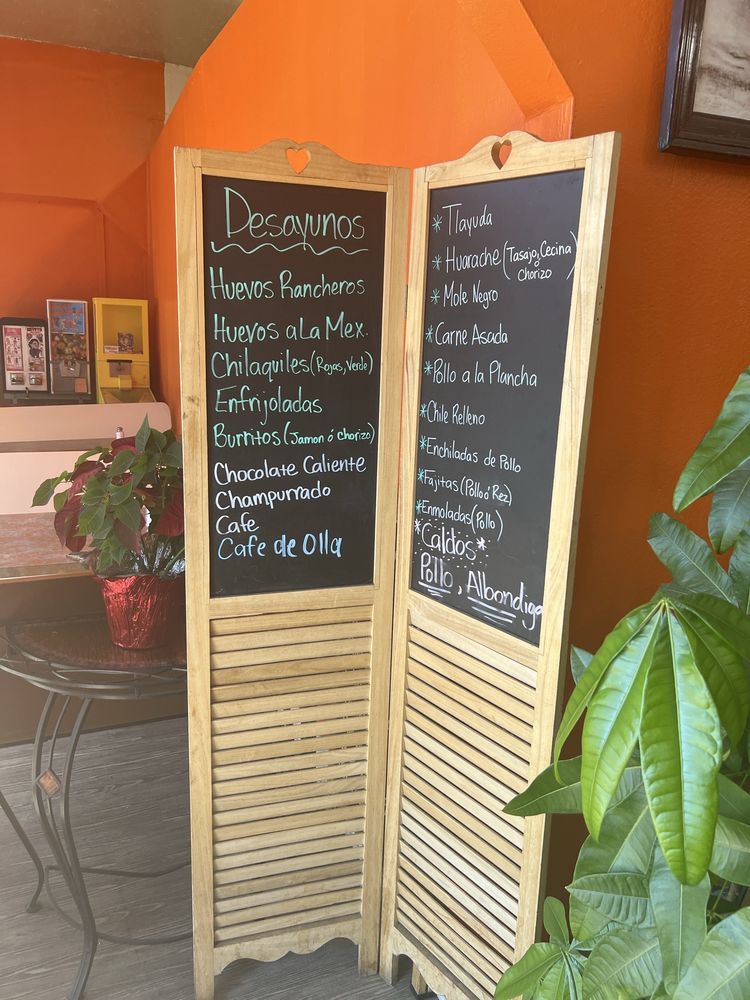 Desayunos
Huevos Rancheros
Huevos a La Mex.
Chilaquiles (Rojas, Verde)
Enfrijoladas
Burritos (Jamon ó chorizo)
Chocolate Caliente
Champurrado
Cafe
Cafe de Olla
* Tlayuda
* Huarache (Tasajo, Cecina
ó
Chorizo)
* Mole Negro
* Carne Asada
* Pollo a la Plancha
* Chile Relleno
* Enchiladas de Pollo
* Fajitas (Pollo ó Rez)
* Enmoladas (Pollo)
* Caldos *
Pollo, Albondiga